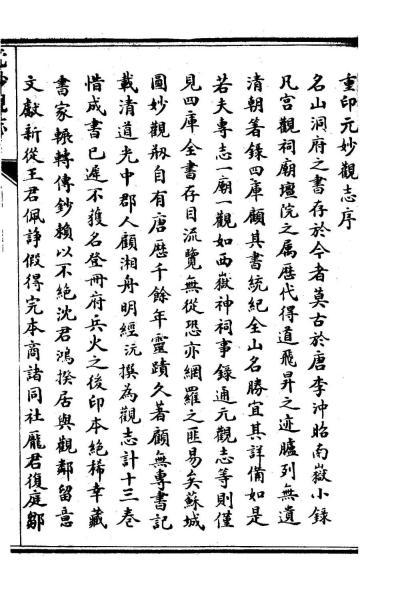 重印元妙觀志序
名山洞府之書存於今者莫古於唐李沖昭南嶽小錄
凡宮觀祠廟壇院之属歷代得道飛昇之迹臚列無遺
清朝箸錄四庫顧其書統紀全山名勝宜其詳備如是
若夫專志一廟一觀如西嶽神祠事錄通元觀志等則僅
見四庫全書存目流覽無從恐亦網羅之匪易矣蘇城
圓妙觀剏自有唐歷千餘年靈蹟久著顧無專書記
載清道光中郡人顧湘舟明經沅撰為觀志計十三卷
惜成書已遲不獲名登冊府兵火之後印本絕稀幸藏
書家輾轉傳鈔賴以不絕沈君鴻揆居與觀鄰留意
文獻新從王君佩諍假得完本商諸同社龐君復庭鄒